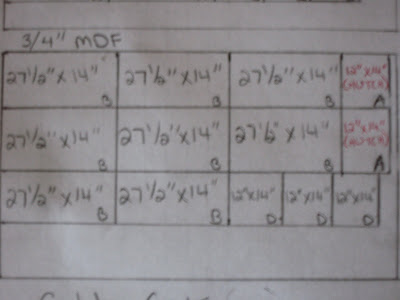 3/4" MDF
27 1/2" x 14" B
27 1/2" x 14" B
27 1/2" x 14" B
12" x 14" (HUTCH) A
27 1/2" x 14" B
27 1/2" x 14" B
27 1/2" x 14" B
12" x 14" (HUTCH) A
27 1/2" x 14" B
27 1/2" x 14" B
12" x 14" D
12" x 14" D
12" x 14" D